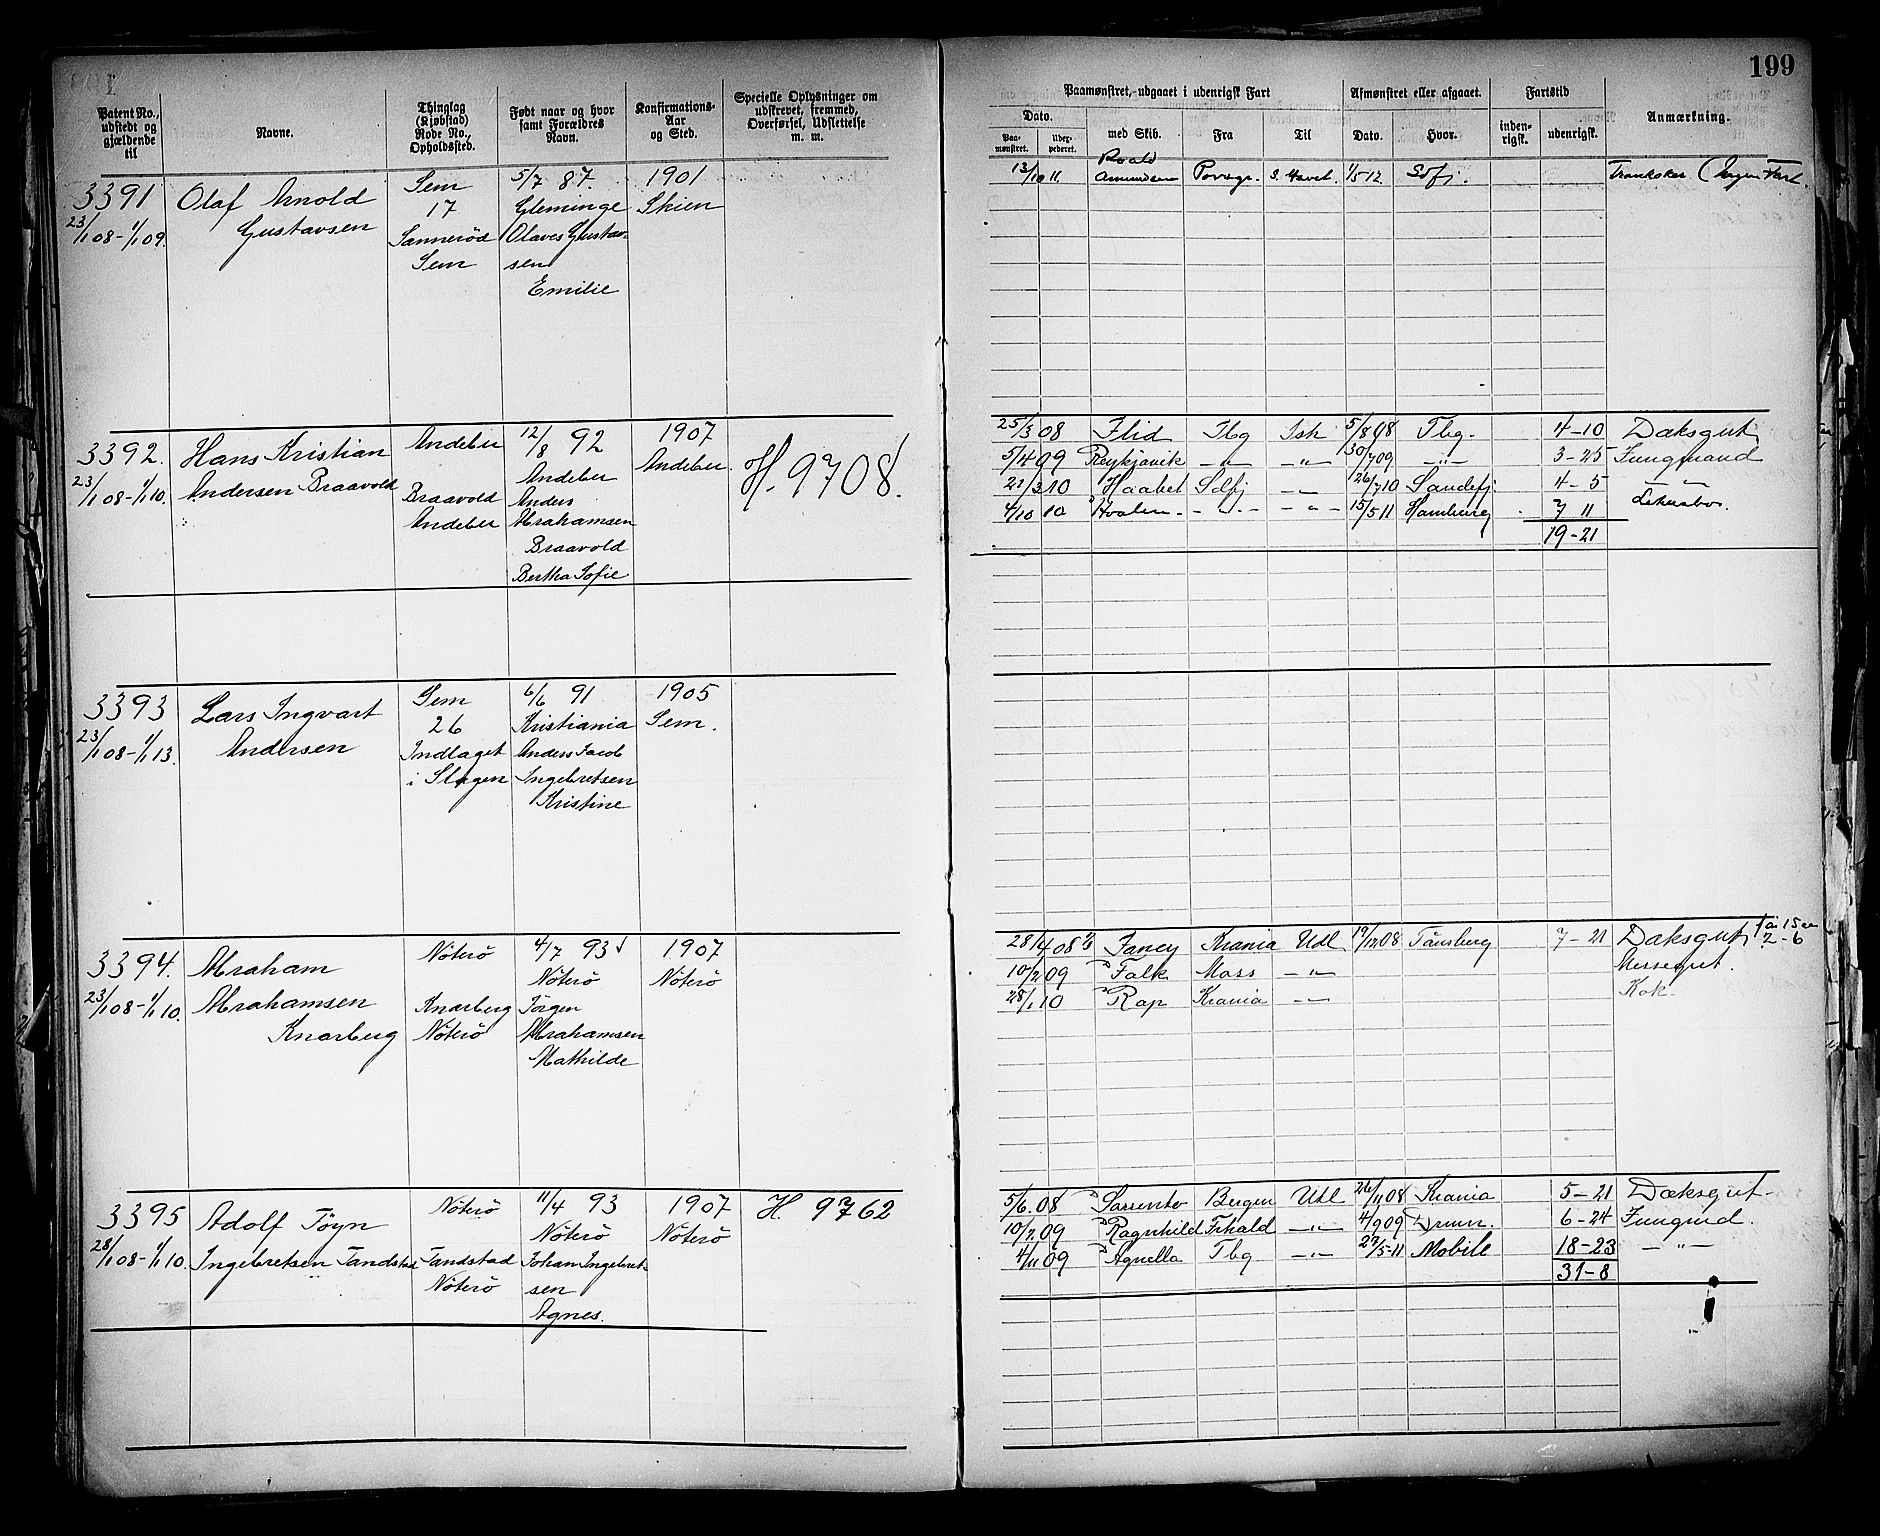 199
Patent No., udstedt og gjældende til
Navne.
Thinglag (Kjøbstad) Rode No., Opholdssted.
Født naar og hvor samt Forældres Navn.
Konfirmations-Aar og Sted.
Specielle Oplysninger om udskrevet, fremmed, Overførsel, Udslettelse m. m.
Paamønstret, -udgaaet i udenrigsk Fart
Dato.
Paa-mønstret.
Udex-pederet.
med Skib.
Fra
Til
Afmønstret eller afgaaet.
Dato.
Hvor.
Fartstid
inden-rigsk.
udenrigsk.
Anmærkning.
3391
23/1 08-1/1 09.
Olaf Arnold
Gustavsen
Sem
17
Sannerød
Sem
5/7 87.
Gleminge
Olaves Gustav-
sen
Emilie
1901
Skien
13/10 11. Roald Amundsen Porsgr. S. Havet. 1/5 12. Sofj. Trankoker (Ingen Fart.
3392.
23/1 08-1/1 10.
Hans Kristian
Andersen Braavold
Andebu
Braavold
Andebu
12/8 92
Andebu
Anders
Abrahamsen
Braavold
Bertha Sofie
1907
Andebu.
H. 9708.
25/3 08 Flid Tbg Ish 5/8 08 Tbg. 4-10 Daksgut
5/4 09 Reykjavik -"- -"- 30/7 09 -"- 3-25 Jungmand
21/3 10 Haabet Sofj -"- 26/7 10 Sandefj. 4-5 -"-
4/10 10 Hvalen -"- -"- 15/5 11 Hamburg 7 11
19-21
3393
23/1 08-1/1 13.
Lars Ingvart
Andersen
Sem
26
Indlaget
i Slagen
6/6 91
Kristiania
Anders Jacob
Ingebretsen
Kristine
1905
Sem.
3394.
23/1 08-1/1 10.
Abraham
Abrahamsen
Knarberg
Nøterø
Knarberg
Nøterø
4/7 93
Nøterø
Jørgen
Abrahamsen
Mathilde
1907
Nøterø
28/4 08 Fancy Krania Udl 19/12 08 Tønsberg 7-21 Daksgut 2-6
10/2 09 Falk Moss -"- Messegut.
28/1 10 Rap Krania -"- Kok.
3395
28/1 08-1/1 10.
Adolf Töyn
Ingebretsen Tandstad
Nøterø
Tandstad
Nøterø
11/4 93
Nøterø
Johan Ingebret-
sen
Agnes.
1907
Nøterø
H. 9762
5/6 08 Sorrento Bergen Udl 26/11 08 Krania 5-21 Dæksgut-
10/2 09 Ragnhild Frhald -"- 4/9 09 Drmn. 6-24 Jungmd.
4/11 09 Agnella Tbg -"- 27/5-11 Mobile 18-23 -"-
31-8